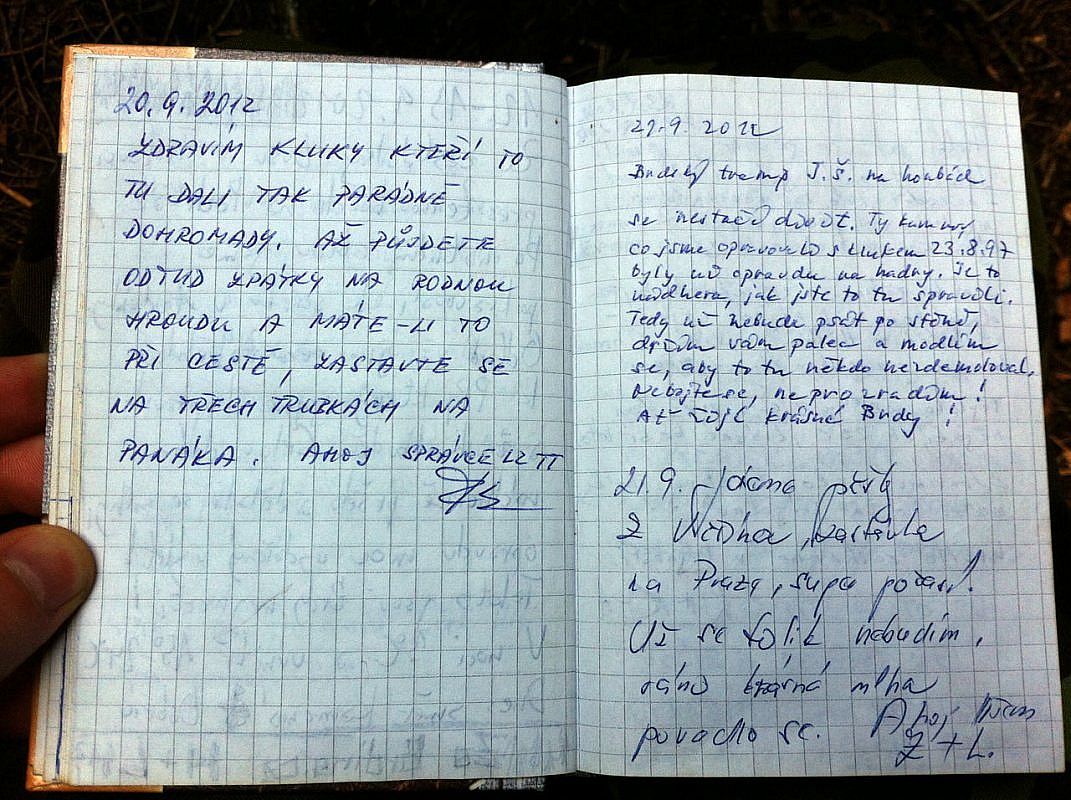 20.9.2012
ZDRAVÍM KLUKY KTEŘÍ TO
TU DALI TAK PARÁDNĚ
DOHROMADY. AŽ PŮJDETE
ODTUD ZPÁTKY NA RODNOU
HROUDU A MÁTE-LI TO
PŘI CESTĚ, ZASTAVTE SE
NA TŘECH TRUBKÁCH NA
PANÁKA. AHOJ SPRÁVCE
21.9. 2012
Brdský tramp J.Š. na houbách
se nestačil divit. Ty
co jsme opravovali s klukem 23.8.97
byly už opravdu na hadry. Je to
nádhera, jak jste to tu spravili.
Tedy už nebudu psát po stěně,
držím vám palec a modlím
se, aby to tu někdo nezdemoloval.
Nebojte se, neprozradím!
Ať žijí krásné Brdy!
21.9. Jdeme pěšky
z zastávka
na Praze, supr počasí.
Už se tolik nebudím,
ráno krásná mlha
povedlo se. Ahoj
Z + L.